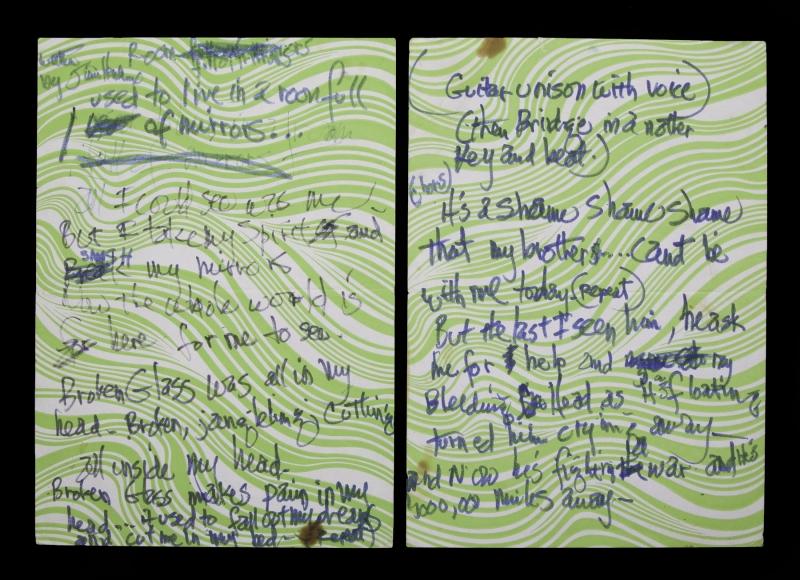 written Room full of mirrors
by Jimi Hendrix
used to live in a room full
I of mirrors...
All I could see was me
But I take my Spirit and
SMASH my mirrors
Now the whole world is
here for me to see.
Broken Glass was all in my
head - Broken, jangleling cutting
all inside my head -
Broken Glass makes pain in my
head... it used to fall out my dreams
and cut me in my bed - repeat
(Guitar unison with voice)
(then Bridge in a nother
Key and beat.)
It's a shame shame shame
that my brothers.... cant be
with me today (repeat)
But the last I seen him, he ask
me for help and my
Bleeding head as I floating
turned him crying away -
and Now he's fighting war and it's
1000,00 miles away -